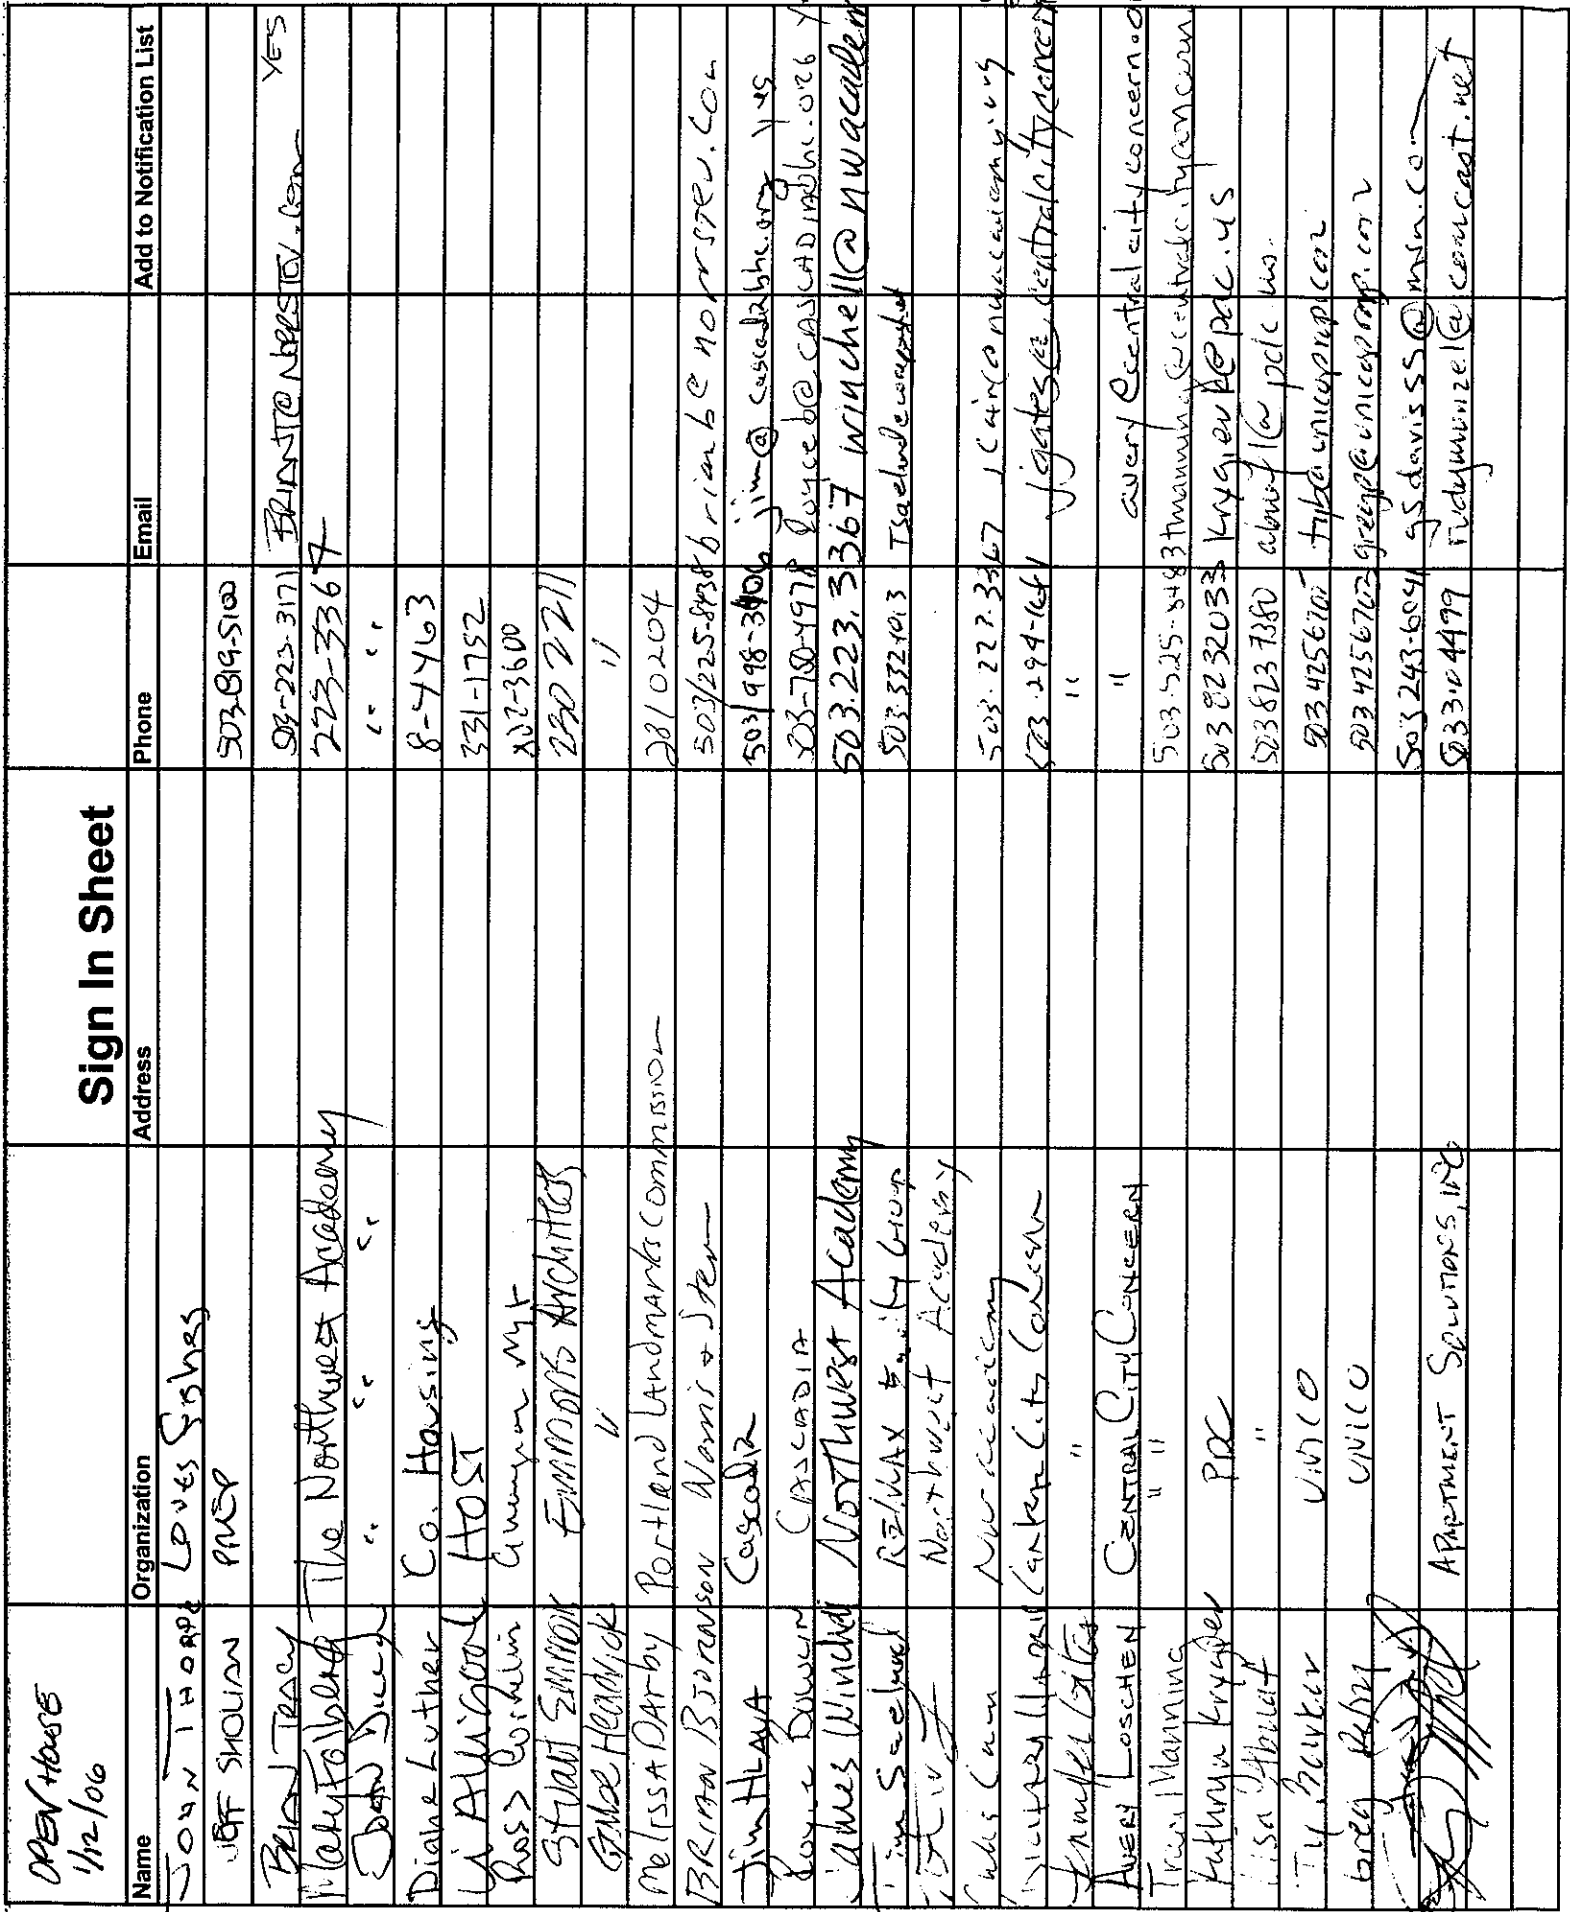 OPEN HOUSE
1/12/06
Sign In Sheet
Name Organization Address Phone Email Add to Notification List
JOHN THORPE Loves Fishes
JEFF SHOLIAN PMEP 503-819-5100
BRIAN TRACY 503-223-3171 BRIANT@NORRSTEV.COM YES
Mary Folberg The Northwest Academy 223-3367
John " " " " "
Diane Luther Co. Housing 8-4463
HOST 331-1752
Ross Cornelius Guardian Mgt 802-3600
Stuart Emmons Emmons Architects 230 2211
Headrick " "
Melissa Darby Portland Landmarks Commission 281 0204
BRIAN BJORNSON Norris & Steven 503/225-8438 brianb@norrstev.com
Jim HLAVA Cascadia 503/998-3406 jim@cascadiabhc.org yes
Royce Bowlin CASCADIA 503-780-4978 royceb@CASCADIABHC.ORG Y
James Winchell Northwest Academy 503.223.3367 winchell@nwacadem
Tim RE/MAX Equity Group 503.332.1013
Northwest Academy
NW Academy 503.223.3367
Central City Concern 503.294-1681
Jennifer " "
AVERY LOSCHEN CENTRAL CITY CONCERN " avery@centralcityconcern.o
Traci Manning " 503.525-8483 tmanning@centralcityconcern
Kathryn Krygier PDC 503 823 2033 krygierk@pdc.us
Lisa Abuaf " 503 823 7380 abuafl@pdc.us.
Ty Barker UNICO 503 4256701 tyb@unicoprop.com
Greg UNICO 503 4256702 gregp@unicoprop.com
503 243-6041 gsdaviss@msn.com
APARTMENT SOLUTIONS, INC 503 330 4499 rudymunzel@comcast.net